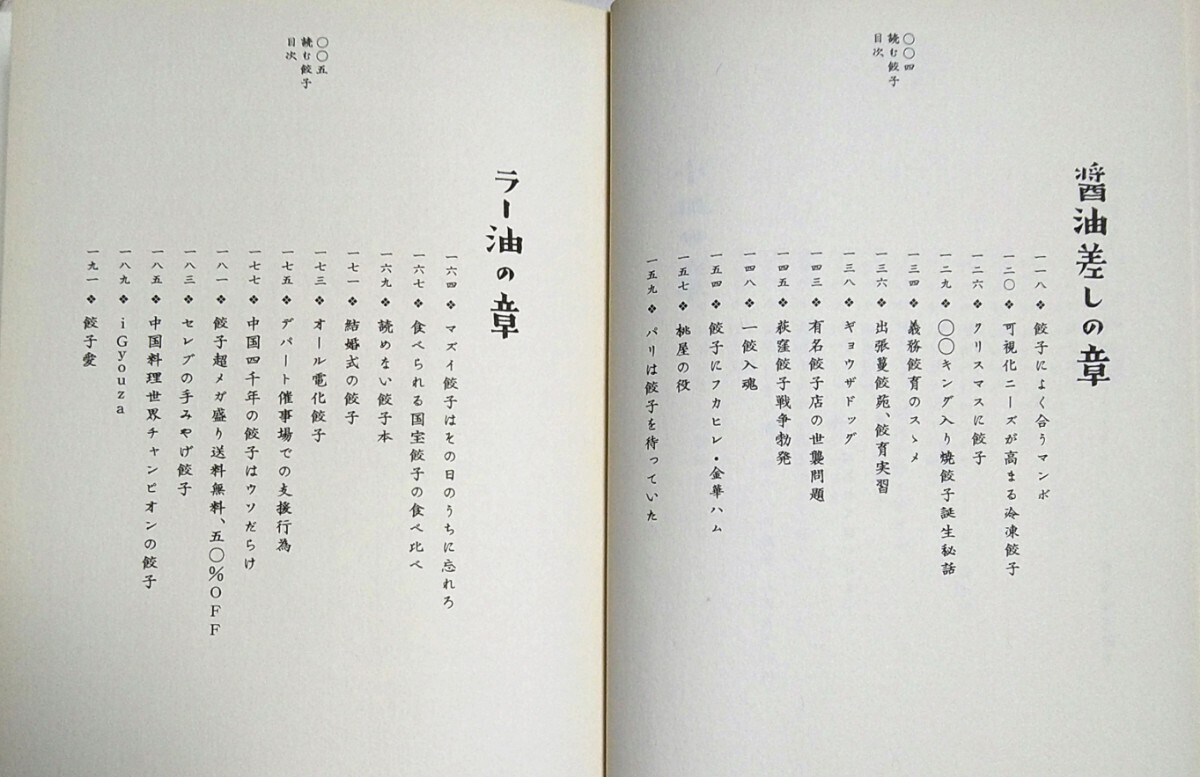 〇〇四
読む餃子
目次
醤油差しの章
一一八❖餃子によく合うマンボ
一二〇❖可視化ニーズが高まる冷凍餃子
一二六❖クリスマスに餃子
一二九❖〇〇キング入り焼餃子誕生秘話
一三四❖義務餃育のスヽメ
一三六❖出張蔓餃苑、餃育実習
一三八❖ギョウザドッグ
一四三❖有名餃子店の世襲問題
一四五❖荻窪餃子戦争勃発
一四八❖一餃入魂
一五四❖餃子にフカヒレ・金華ハム
一五七❖桃屋の役
一五九❖パリは餃子を待っていた
〇〇五
読む餃子
目次
ラー油の章
一六四❖マズイ餃子はその日のうちに忘れろ
一六七❖食べられる国宝餃子の食べ比べ
一六九❖読めない餃子本
一七一❖結婚式の餃子
一七三❖オール電化餃子
一七五❖デパート催事場での支援行為
一七七❖中国四千年の餃子はウソだらけ
一八一❖餃子超メガ盛り送料無料、五〇％OFF
一八三❖セレブの手みやげ餃子
一八五❖中国料理世界チャンピオンの餃子
一八九❖iGyouza
一九一❖餃子愛